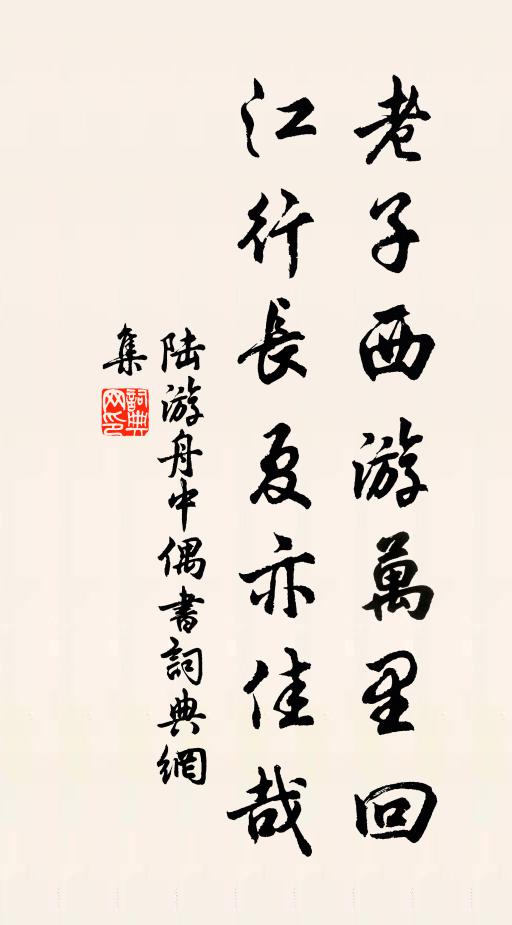 老子西游萬里回
江行長夏亦佳哉
陸游舟中偶書詞典網
集
詞典网印